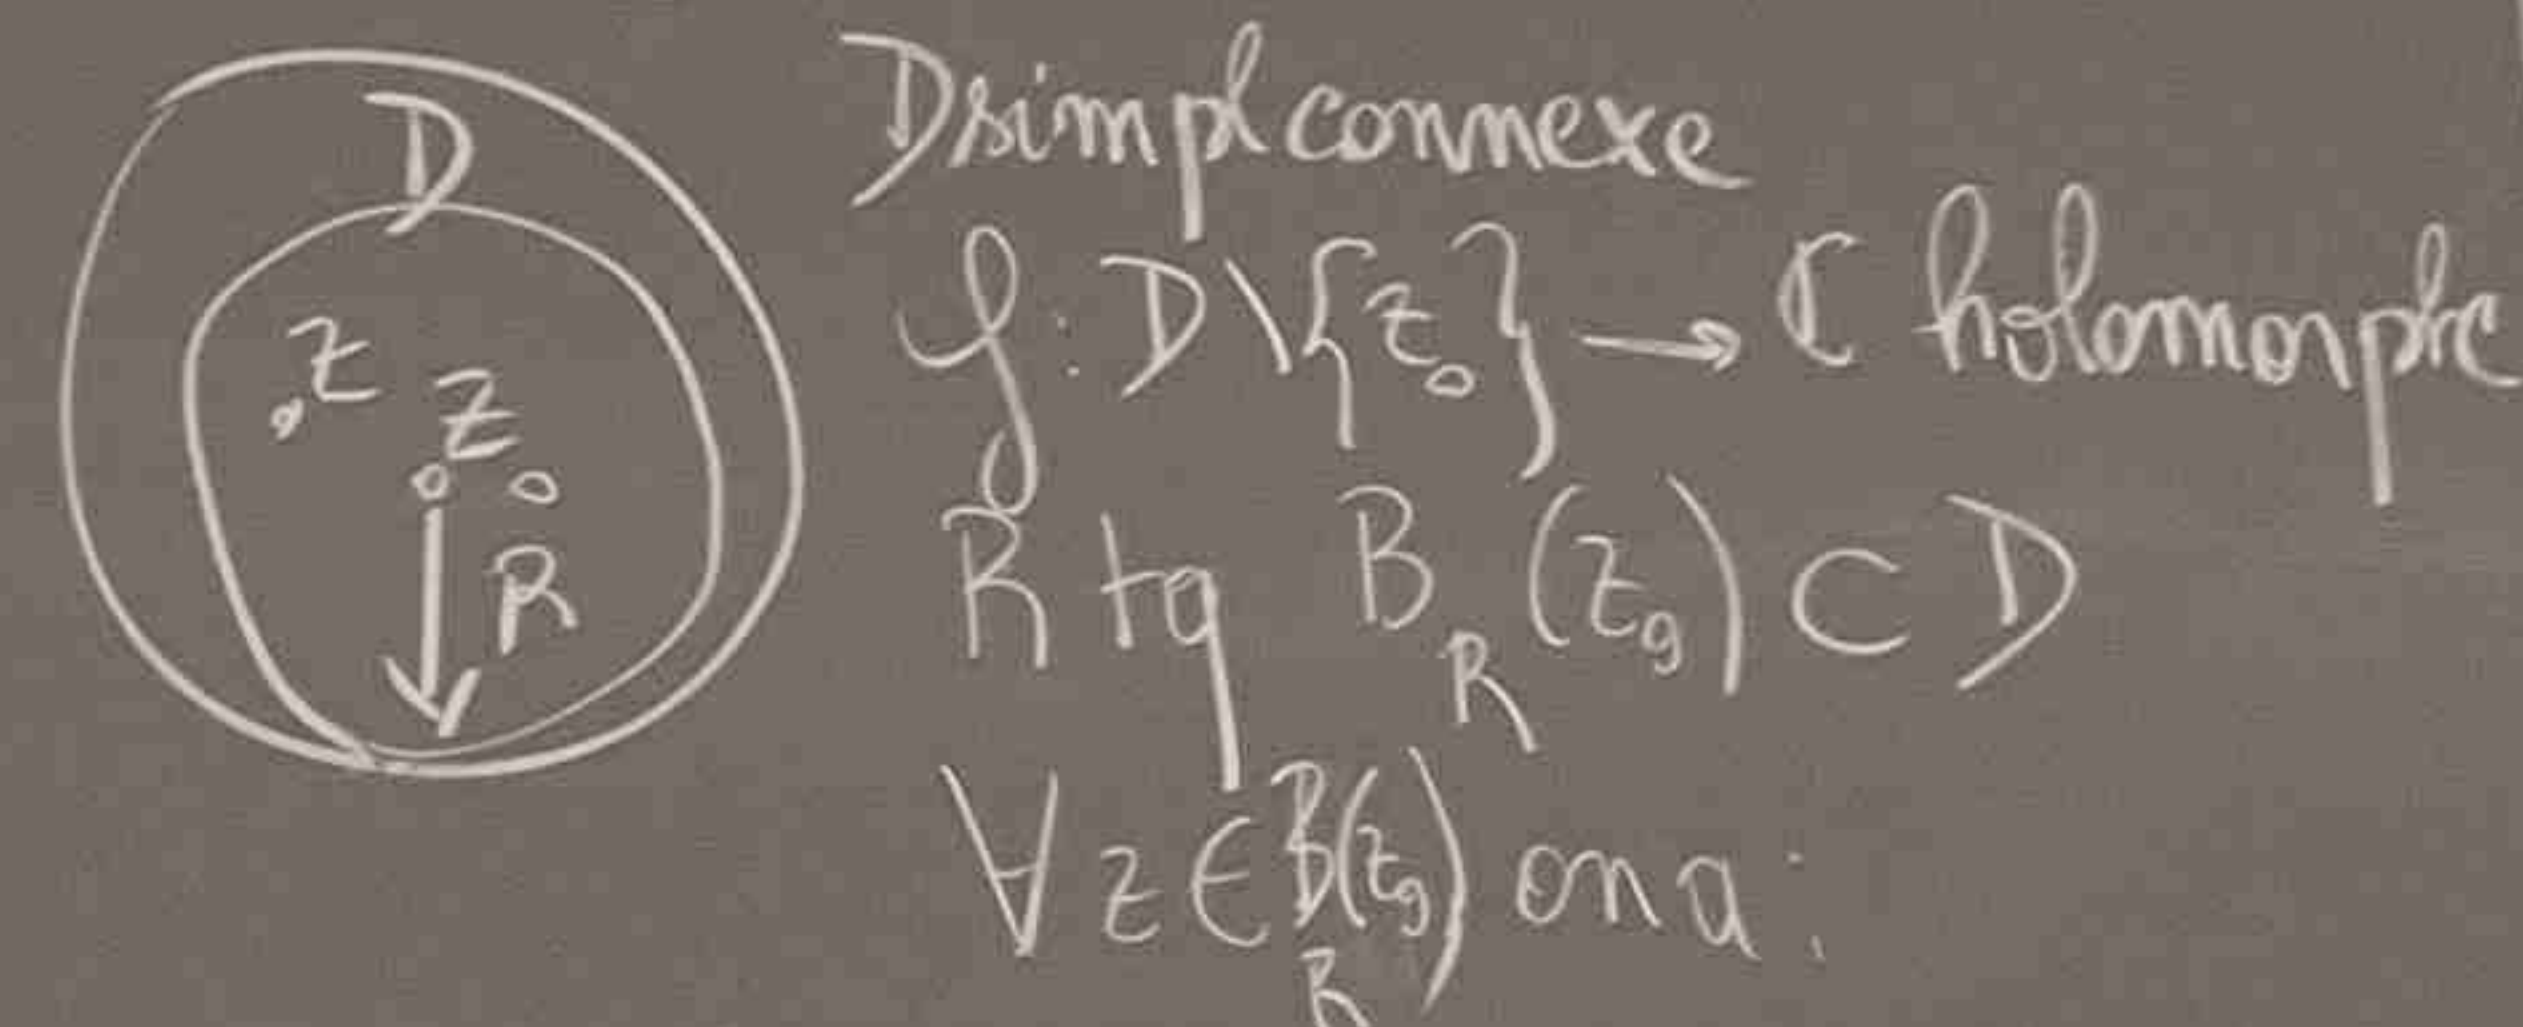 D
z
z₀
R
D simpl connexe
f : D \ {z₀} → ℂ holomorphe
R tq B_R(z₀) ⊂ D
∀ z ∈ B_R(z₀) on a :